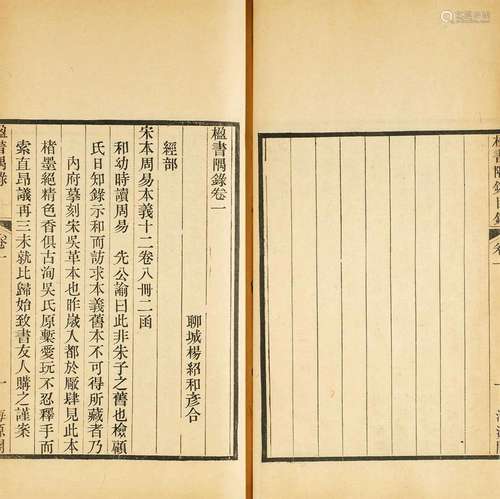 楹書隅錄卷一
聊城楊紹和彥合
經部
宋本周易本義十二卷八冊二函
和幼時讀周易　先公諭曰此非朱子之舊也檢顧
氏日知錄示和而訪求本義舊本不可得所藏者乃
內府摹刻宋吳革本也昨歲入都於廠肆見此本
楮墨絕精色香俱古洵吳氏原槧愛玩不忍釋手而
索直昂議再三未就比歸始致書友人購之謹案
楹書隅錄
卷一
一
海源閣